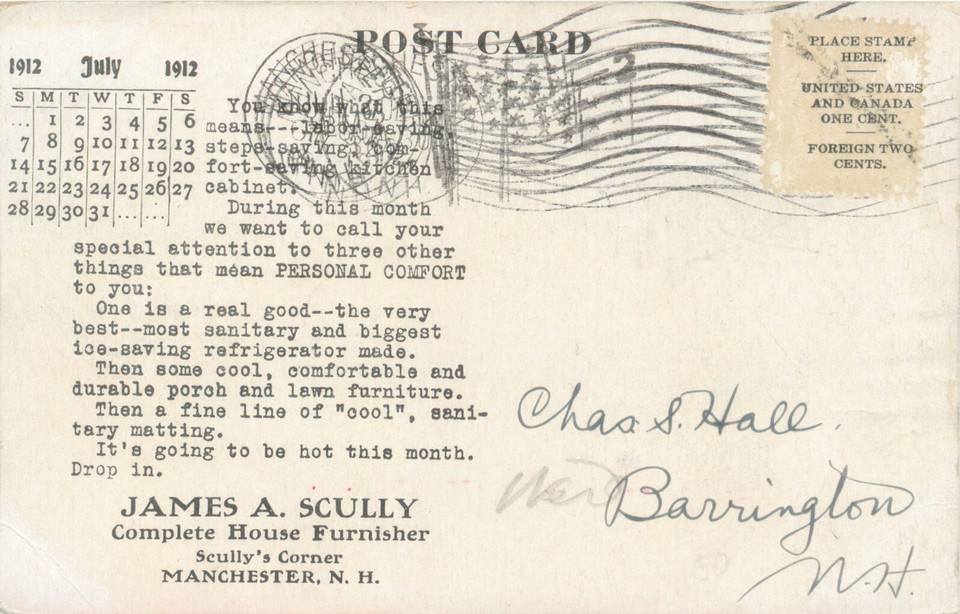 POST CARD
1912 July 1912
S M T W T F S
... 1 2 3 4 5 6
7 8 9 10 11 12 13
14 15 16 17 18 19 20
21 22 23 24 25 26 27
28 29 30 31 ... ...
You know what this
means---labor-saving,
steps-saving, com-
fort-saving kitchen
cabinet.
During this month
we want to call your
special attention to three other
things that mean PERSONAL COMFORT
to you:
One is a real good--the very
best--most sanitary and biggest
ice-saving refrigerator made.
Then some cool, comfortable and
durable porch and lawn furniture.
Then a fine line of "cool", sani-
tary matting.
It's going to be hot this month.
Drop in.
JAMES A. SCULLY
Complete House Furnisher
Scully's Corner
MANCHESTER, N. H.
PLACE STAMP
HERE.
UNITED STATES
AND CANADA
ONE CENT.
FOREIGN TWO
CENTS.
Chas. S. Hall.
Barrington
N.H.